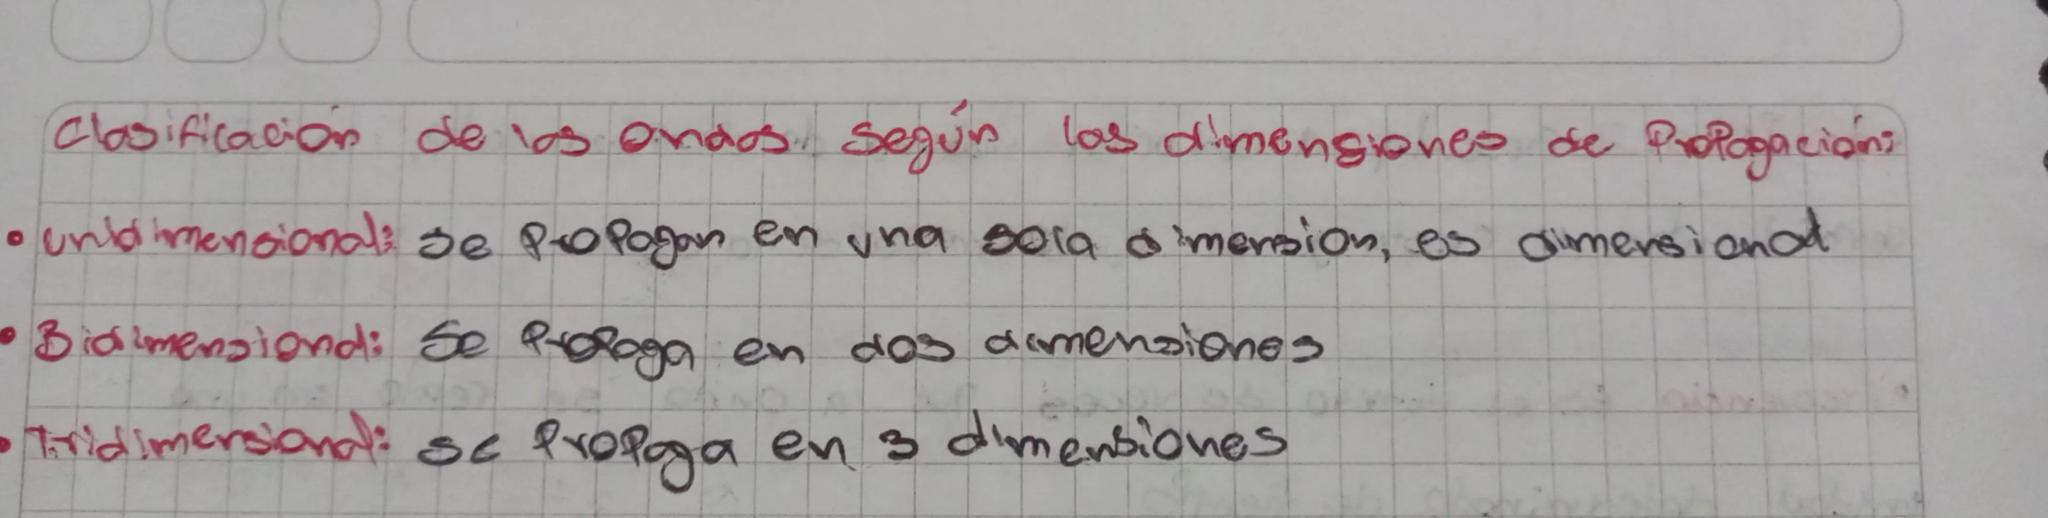 Clasificación de las ondas según las dimensiones de Propagación:
• unidimensional: se Propagan en una sola dimension, es dimensional
• Bidimensional: Se Propaga en dos dimensiones
• Tridimensional: se Propaga en 3 dimensiones